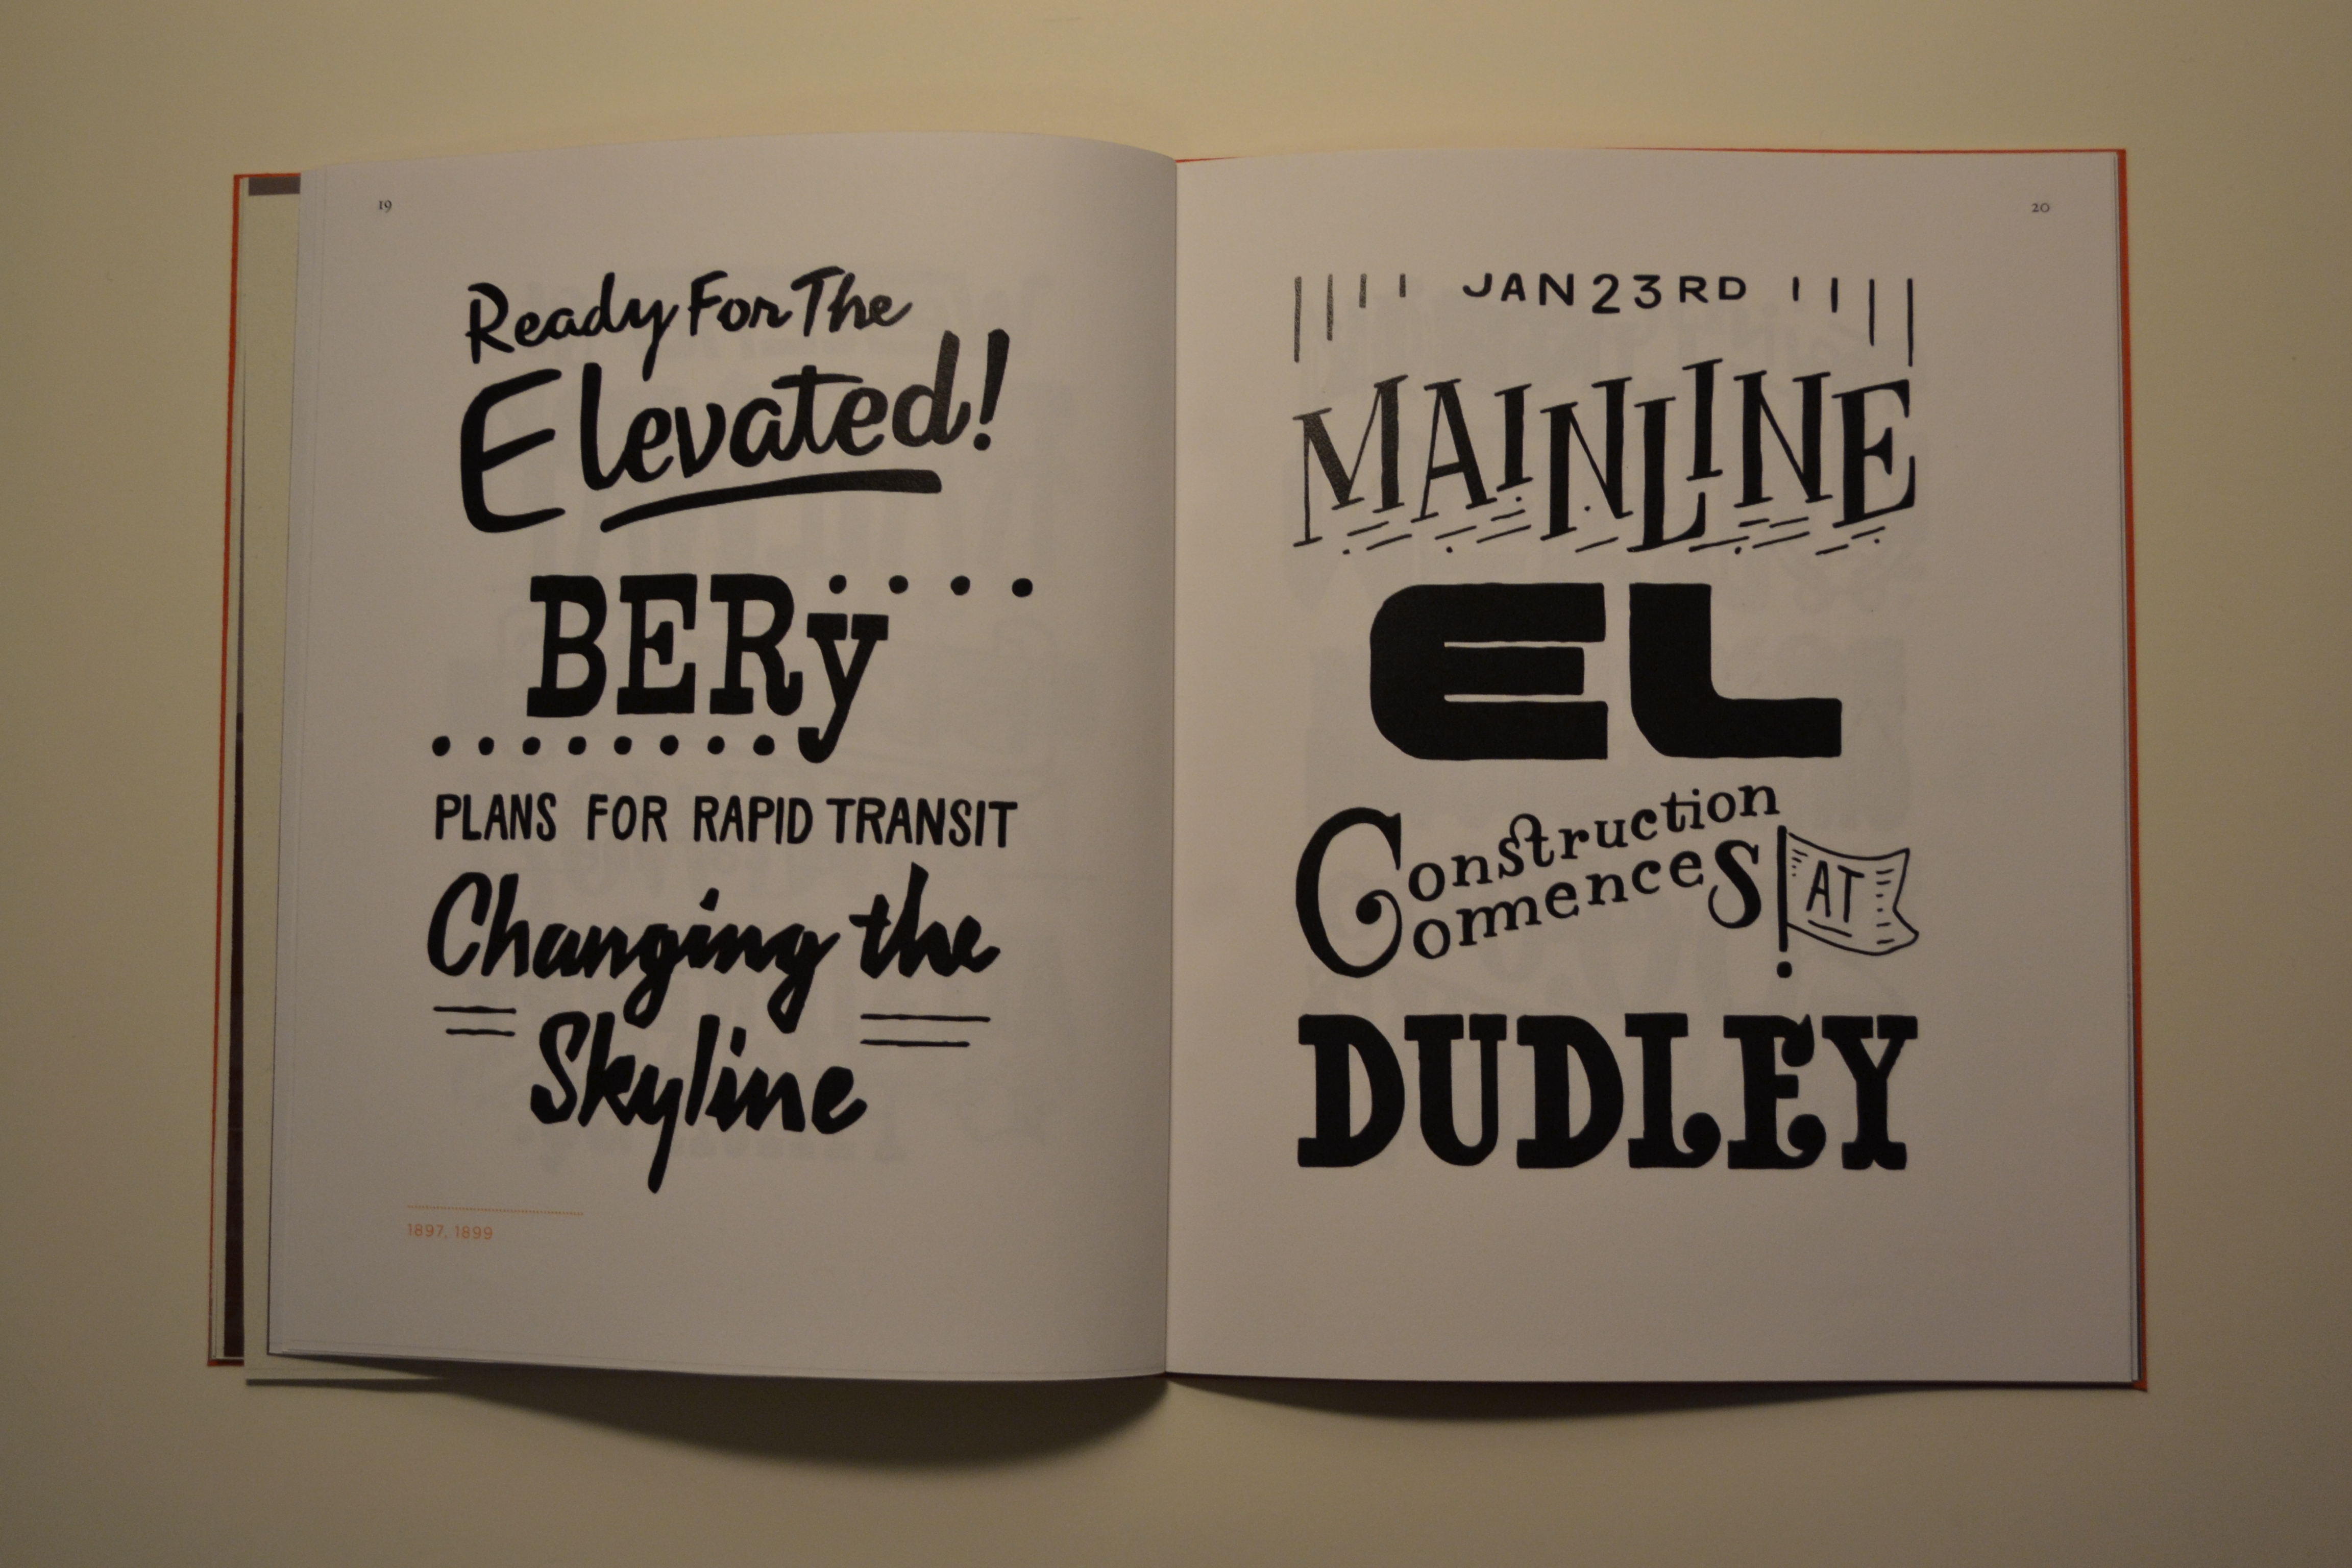 19
Ready For The
Elevated!
BERy
PLANS FOR RAPID TRANSIT
Changing the
Skyline
1897, 1899
20
JAN 23RD
MAINLINE
EL
Construction
Commences AT
DUDLEY